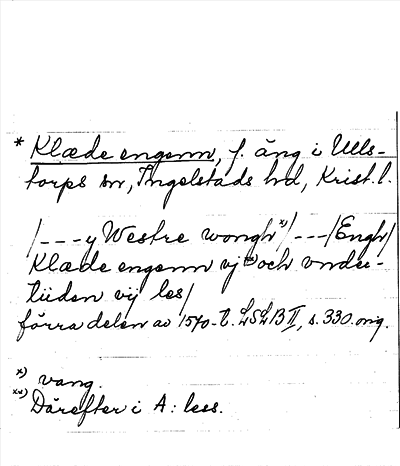 * Klæde engenn, f. äng i Ulls-
torps sn, Ingelstads hd, Krist. l.
/---y Westre wongh x)/---/Engh/
Klæde engenn vj xx) och vnder-
tiiden vij les/
förra delen av 1570-t. LSLB II, s. 330. orig.
x) vang.
xx) Därefter i A: less.